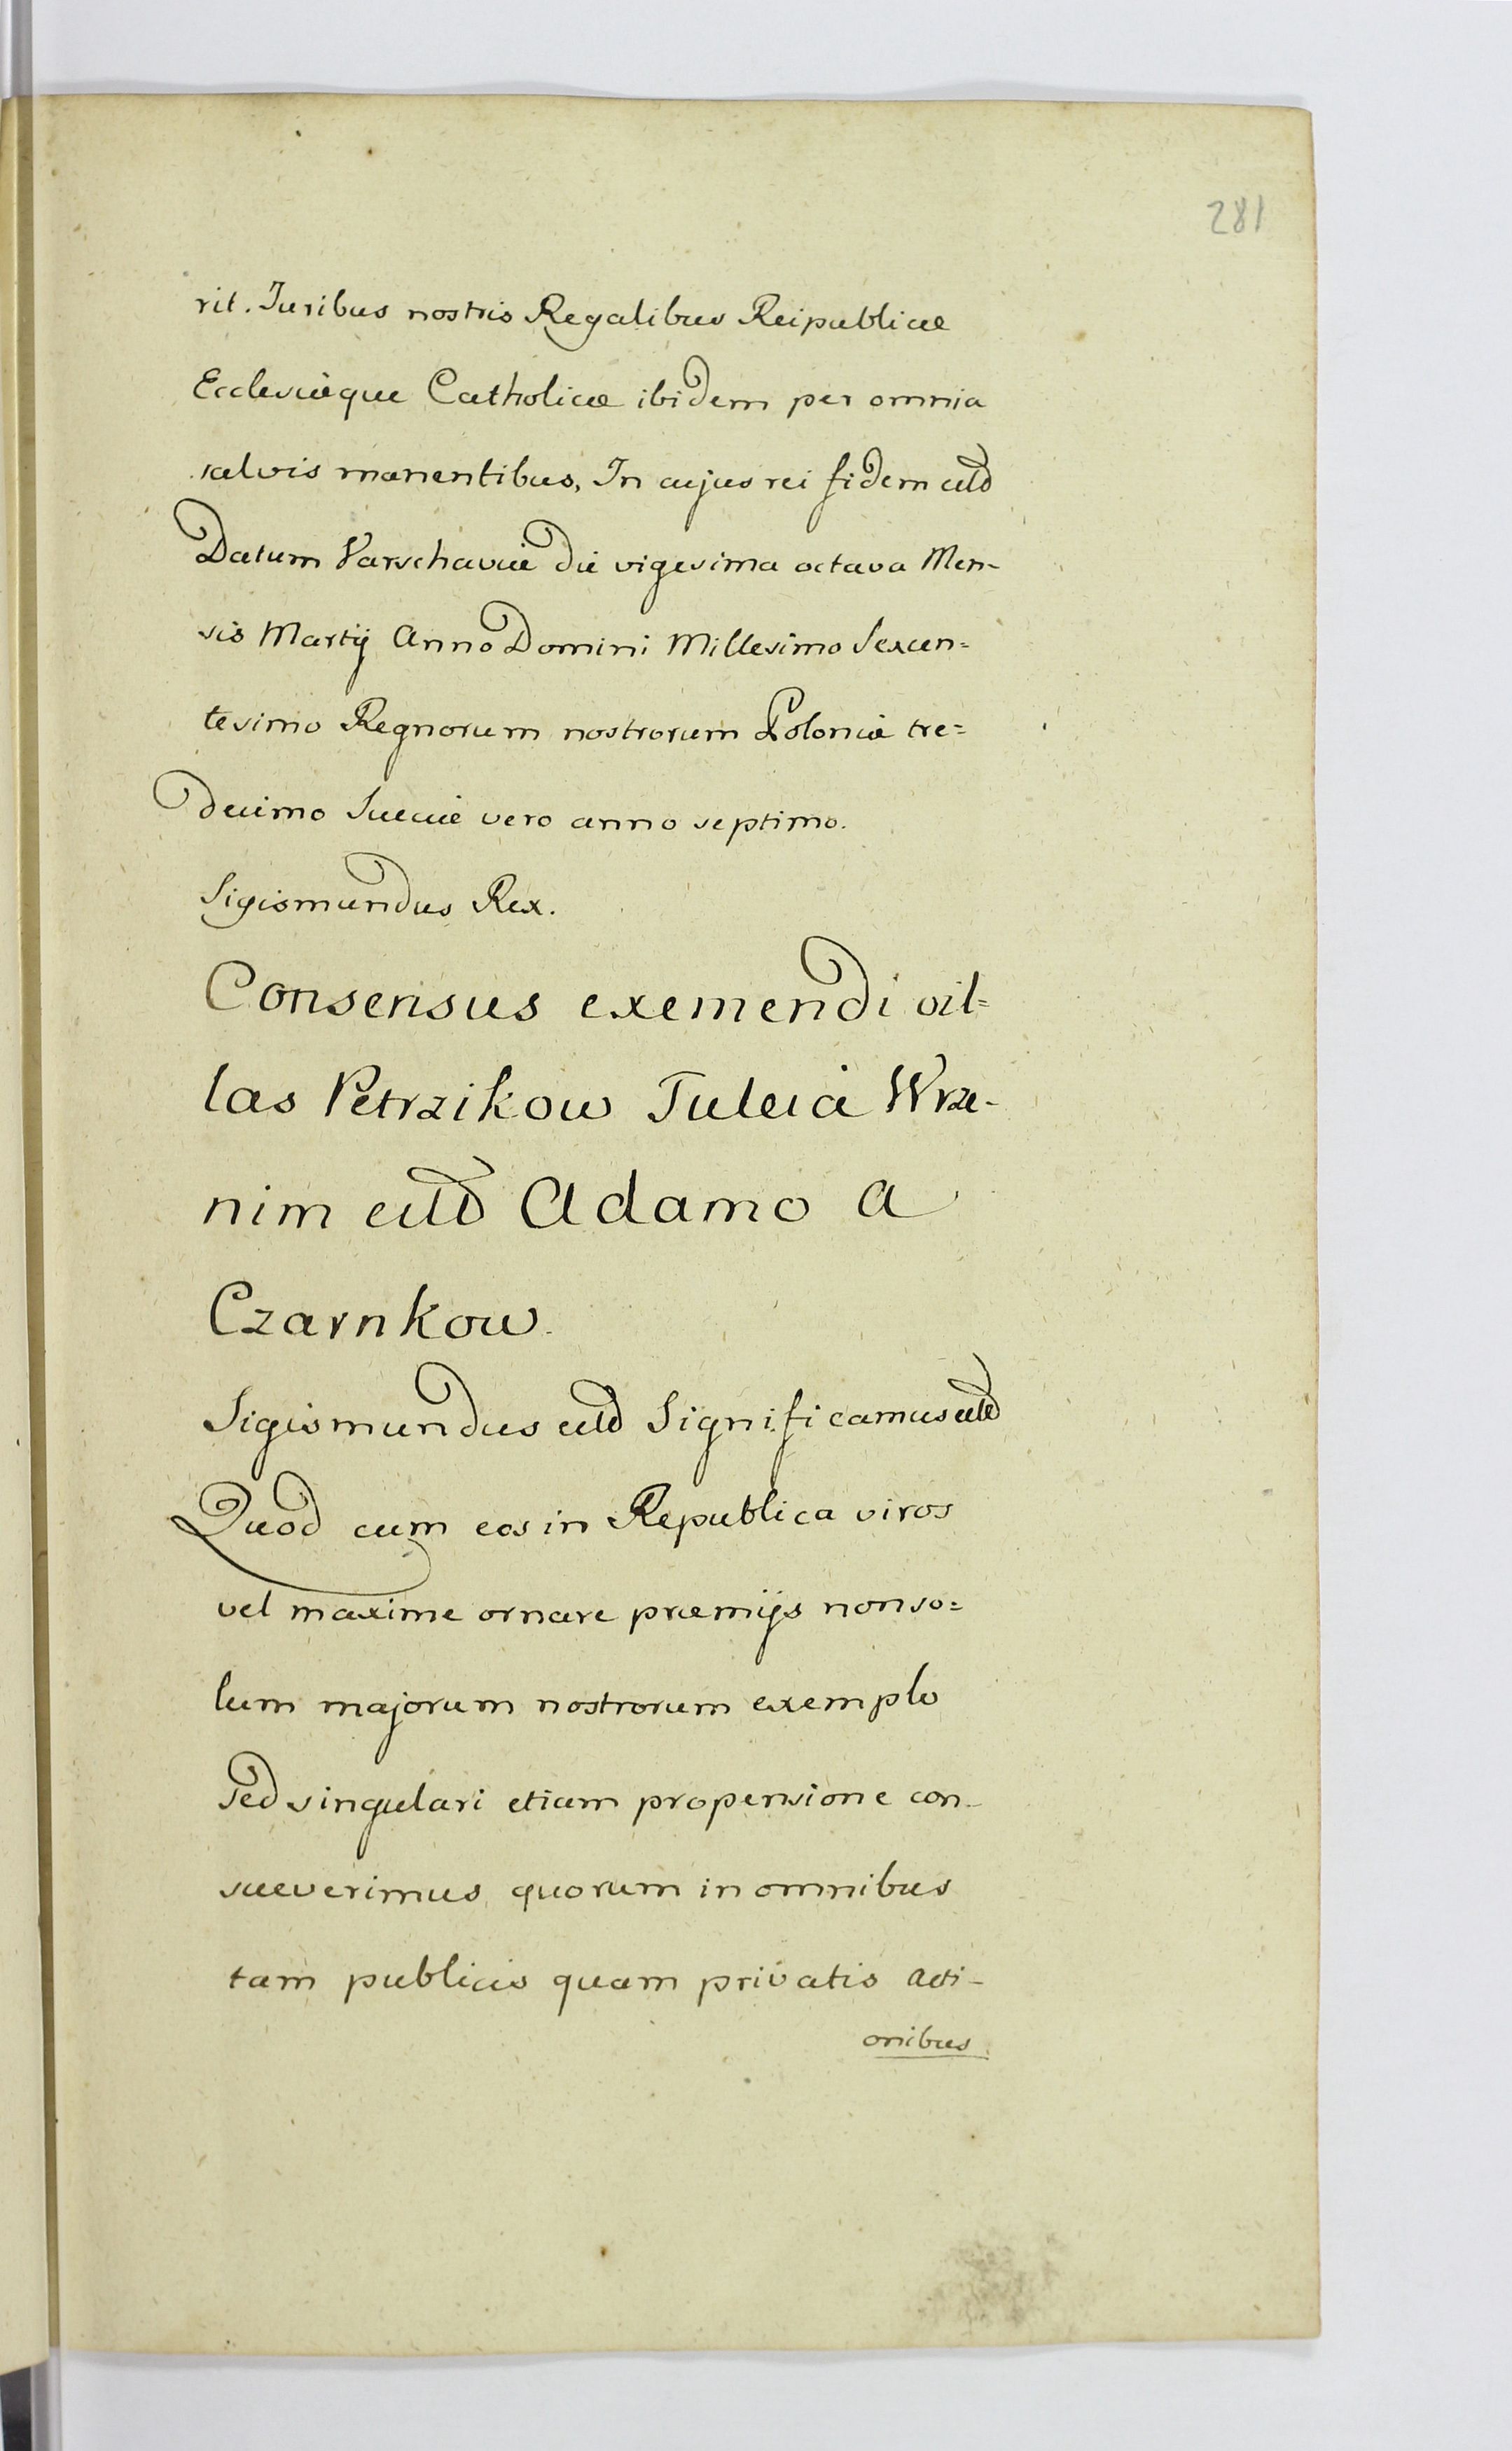 281
rit. Juribus nostris Regalibus Reipublicæ
Ecclesiæque Catholicæ ibidem per omnia
salvis manentibus, In cujus rei fidem etd
Datum Varschaviæ die vigesima octava Men-
sis Martij Anno Domini Millesimo Sexcen=
tesimo Regnorum nostrorum Poloniæ tre=
decimo Sueciæ vero anno septimo.
Sigismundus Rex.
Consensus exemendi vil=
las Petrzikow Tuleia Wrze-
nim etd Adamo a
Czarnkow.
Sigismundus etd Significamus etd
Quod cum eos in Republica viros
vel maxime ornare præmijs non so=
lum majorum nostrorum exemplo
sed singulari etiam propensione con-
sueverimus quorum in omnibus
tam publicis quam privatis acti-
onibus